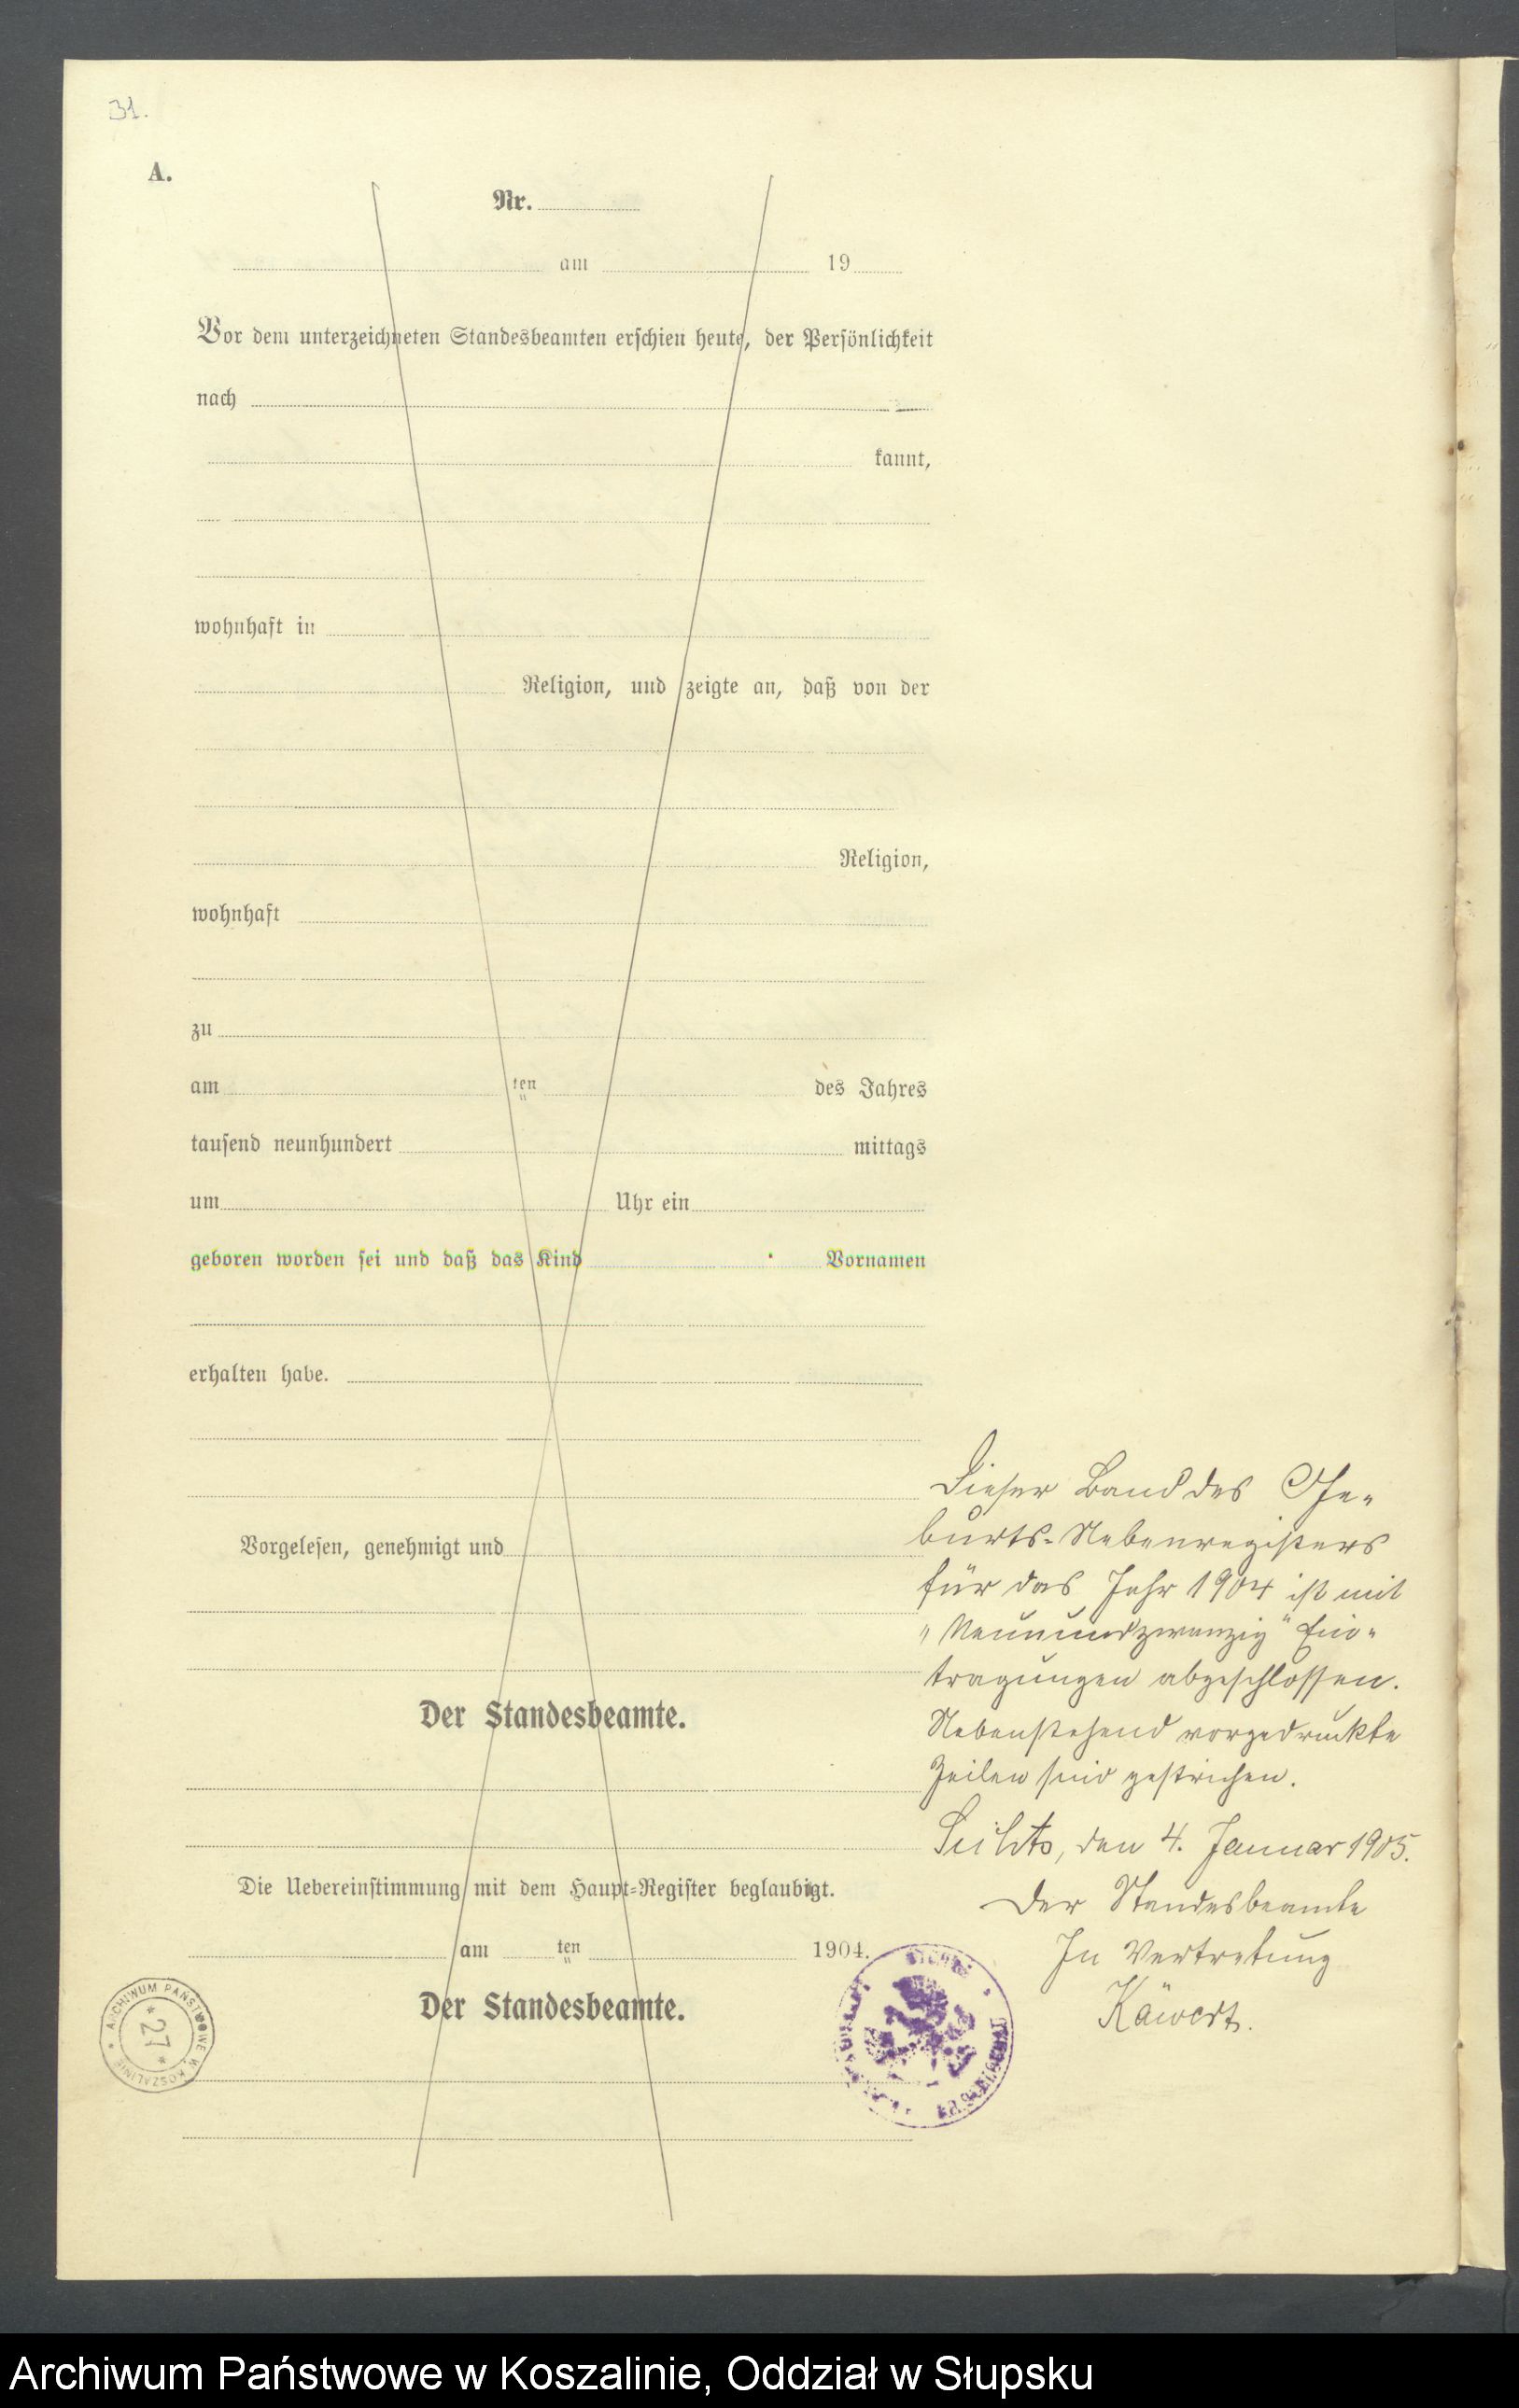 31.
A.
Nr.
am 19
Vor dem unterzeichneten Standesbeamten erschien heute, der Persönlichkeit
nach
kannt,
wohnhaft in
Religion, und zeigte an, daß von der
Religion,
wohnhaft
zu
am ten des Jahres
tausend neunhundert mittags
um Uhr ein
geboren worden sei und daß das Kind Vornamen
erhalten habe.
Vorgelesen, genehmigt und
Der Standesbeamte.
Die Uebereinstimmung mit dem Haupt-Register beglaubigt.
am ten 1904.
Der Standesbeamte.
Dieser Band des Ge-
burts-Nebenregisters
für das Jahr 1904 ist mit
"Neunundzwanzig" Ein-
tragungen abgeschlossen.
Nebenstehend vorgedruckte
Zeilen sind gestrichen.
den 4. Januar 1905.
Der Standesbeamte
In Vertretung
ARCHIWUM PAŃSTWOWE W KOSZALINIE
* 27 *
Archiwum Państwowe w Koszalinie, Oddział w Słupsku